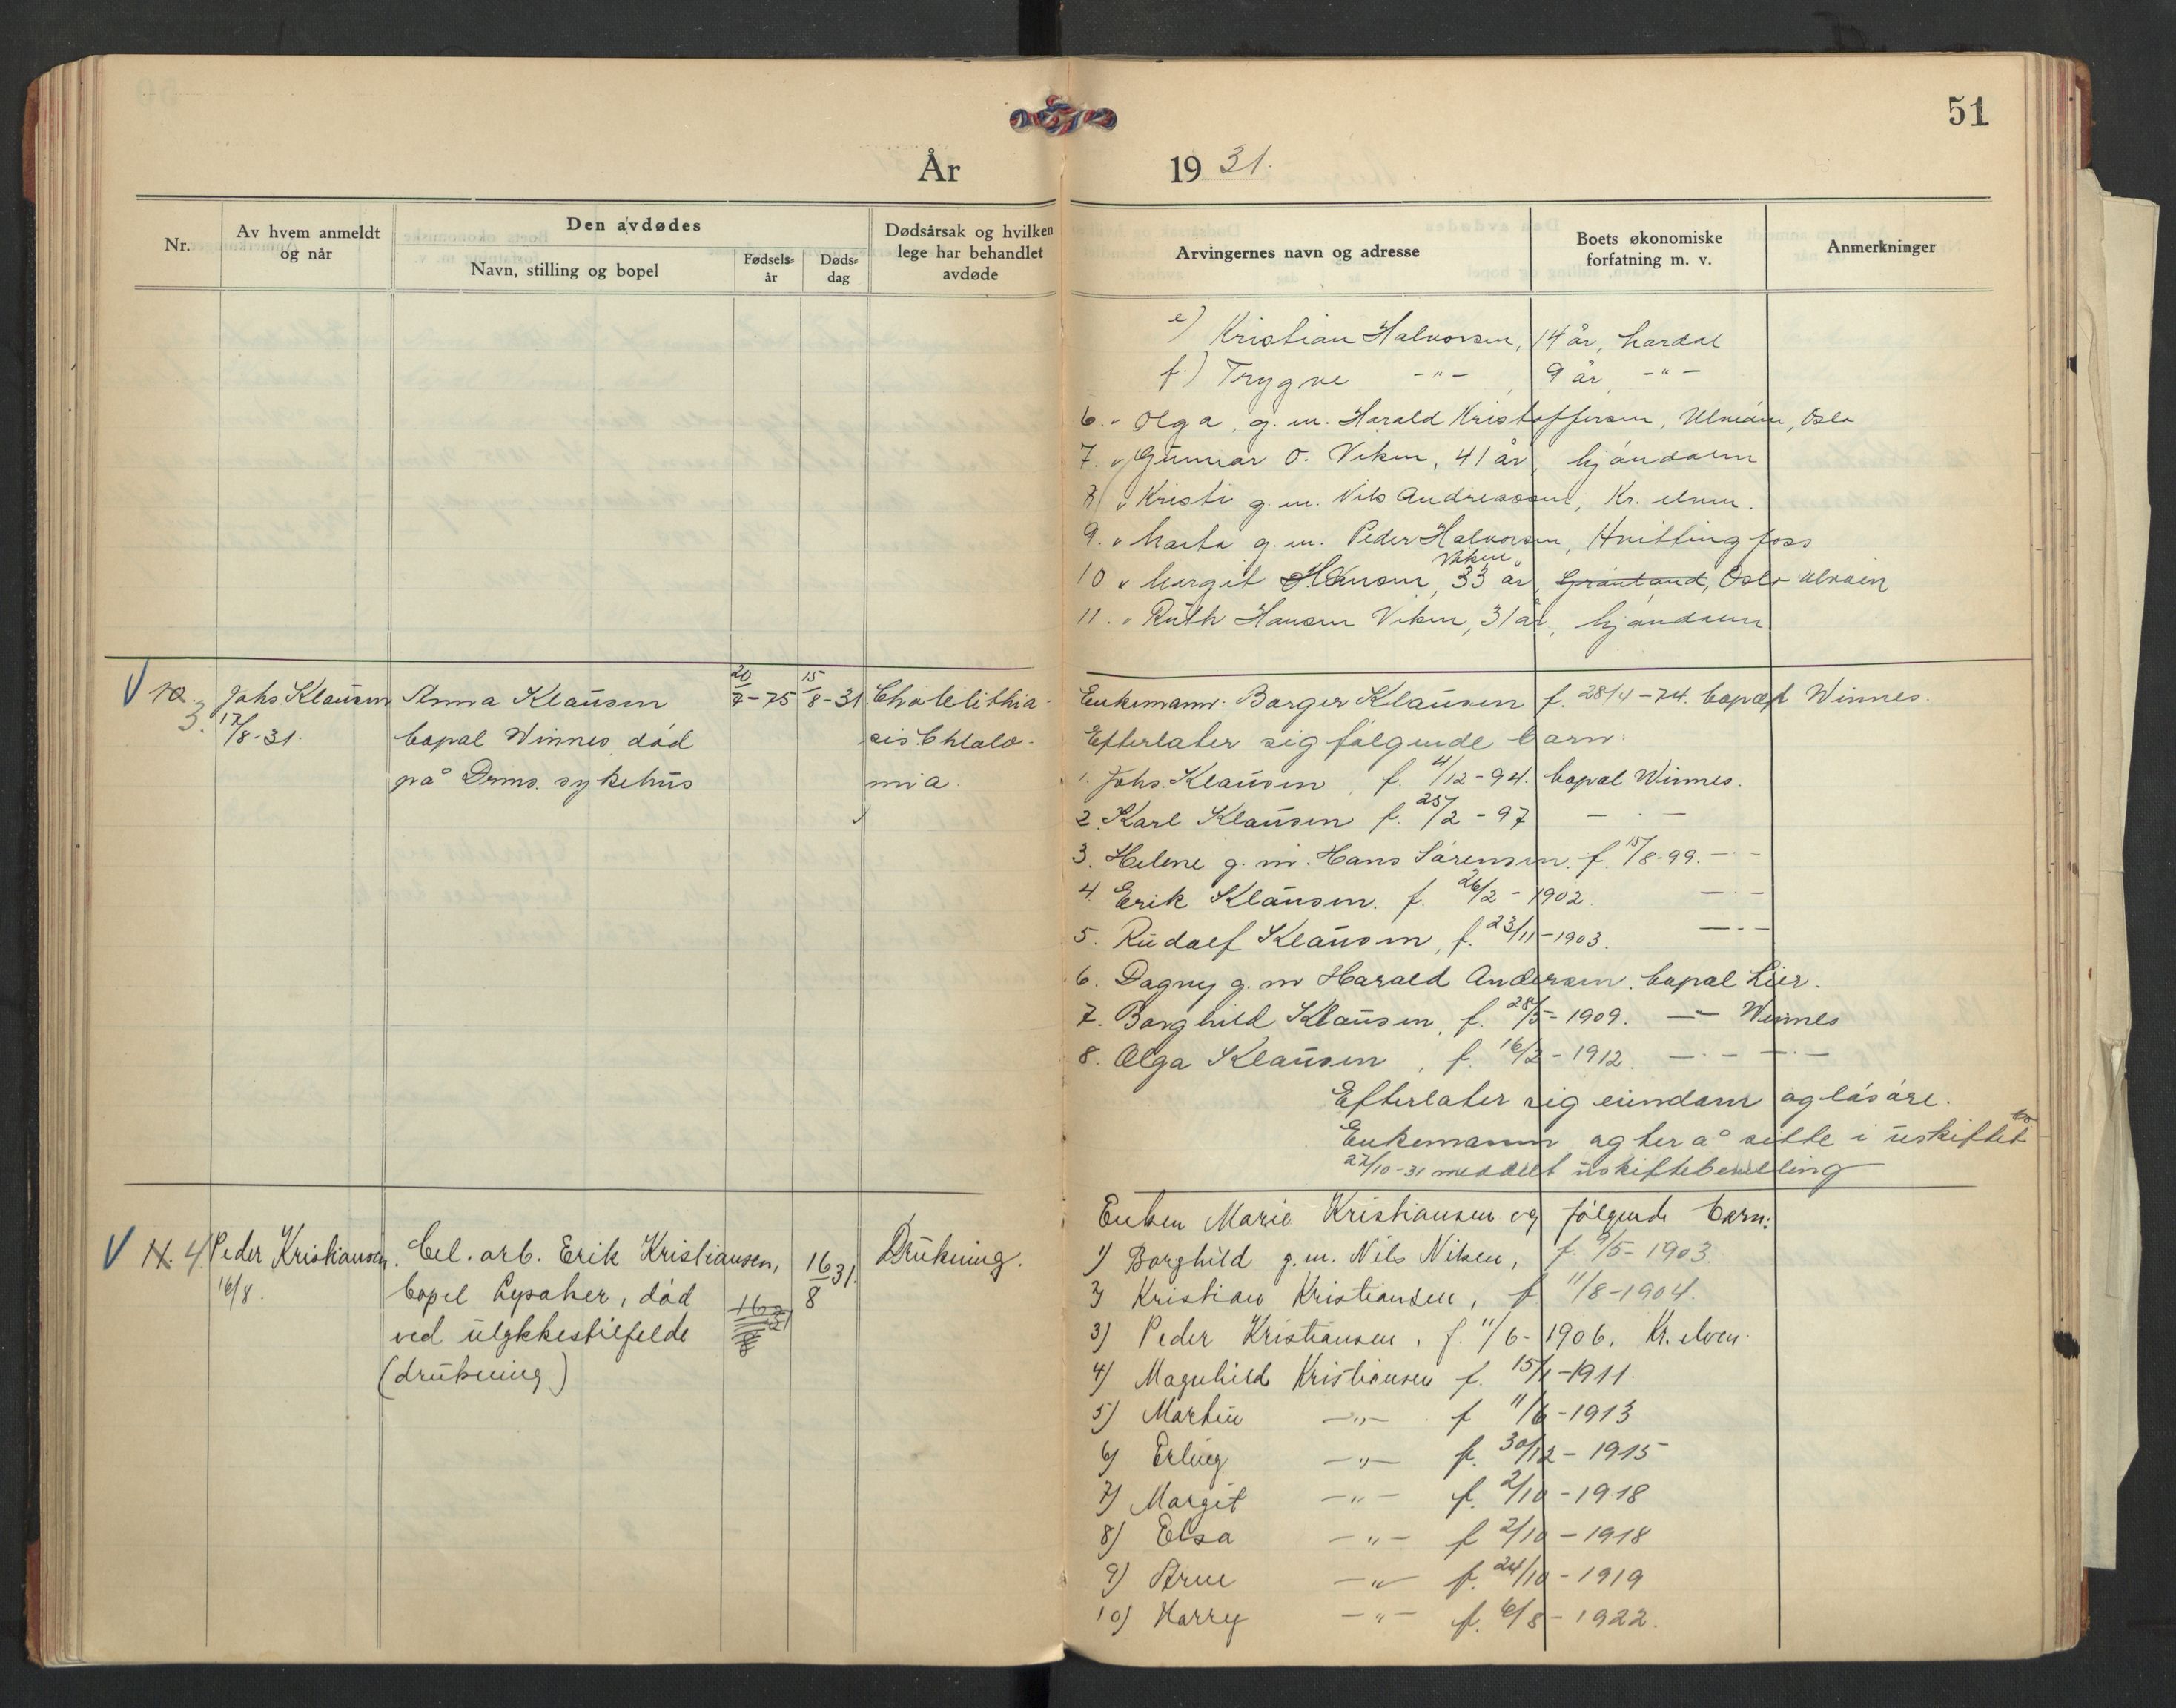 51
År 1931.
Nr.
Av hvem anmeldt
og når
Den avdødes
Navn, stilling og bopel
Fødsels-
år
Døds-
dag
Dødsårsak og hvilken
lege har behandlet
avdøde
Arvingernes navn og adresse
Boets økonomiske
forfatning m. v.
Anmerkninger
e) Kristian Halvorsen, 14 år,
f.) Trygve -"- , 9 år, -"-
6. " Olga, g. m. Harald Kristoffersen, Ulvøen, Oslo
7. " Gunnar O. Viken, 41 år, Mjøndalen
8 " Kristi g. m. Nils Andreassen, Kr. elven.
9. " Marta g. m. Peder Halvorsen, Hvittingfoss
Viken
10 " Margit Hansen, 33 år, Grønland, Oslo Ulvøen
11. " Ruth Hansen Viken, 31 år, Mjøndalen
V 10. 3.
Johs Klausen
17/8-31.
Anna Klausen
bopal Winnes, død
på Drms. sykehus
20/7-75
15/8-31
Cholelithia-
sis. Cholo-
mia.
Enkemann: Borger Klausen f. 28/4-74. bopæl Winnes.
Efterlater sig følgende barn:
1. Johs. Klausen, f. 4/12-94. bopal Winnes.
2. Karl Klausen f. 25/2-97 — " —
3. Helene g. m. Hans Sørensen. f. 15/8-99. — " —
4. Erik Klausen. f. 26/2-1902. — " —
5. Rudolf Klausen, f. 23/11-1903. — " —
6. Dagny g. m Harald Andersen. bopal Lier.
7. Borghild Klausen, f. 28/5-1909. — " — Winnes
8. Olga Klausen, f. 16/2-1912. — " — — " —
Efterlater sig eiendom og løsøre.
Enkemann agter å sitte i uskiftet bo
27/10-31 meddelt uskiftebevilling
V 11. 4.
Peder Kristiansen.
16/8.
Cel. arb. Erik Kristiansen,
bopel Lysaker, død
ved ulykkestilfelde
(drukning)
16/8 31
16/8 31.
Drukning.
Enken Marie Kristiansen og følgende barn:
1) Borghild g. m. Nils Nilsen, f. 9/5-1903.
2) Kristian Kristiansen, f. 11/8-1904.
3) Peder Kristiansen, f. 11/6-1906. Kr. elven.
4) Magnhild Kristiansen f. 15/1-1911.
5) Martin —"— f 11/6-1913
6) Erling —"— f. 30/12-1915
7) Margit —"— f. 2/10-1918
8) Elsa —"— f 2/10-1918
9) Arne —"— f. 24/10-1919
10) Harry —"— f. 6/8-1922.